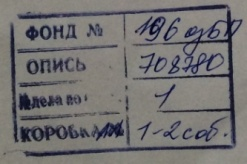 ФОНД № 196 оэбп
ОПИСЬ 708780
№ дела по 1
КОРОБКА 1-2 соб.